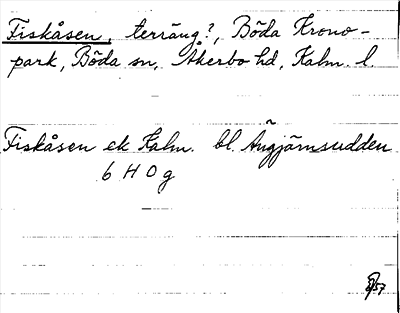 Fiskåsen, terräng?, Böda Krono-
park, Böda sn, Åkerbo hd, Kalm. l.
Fiskåsen ek Kalm. bl. Ängjärnsudden
6 H 0 g